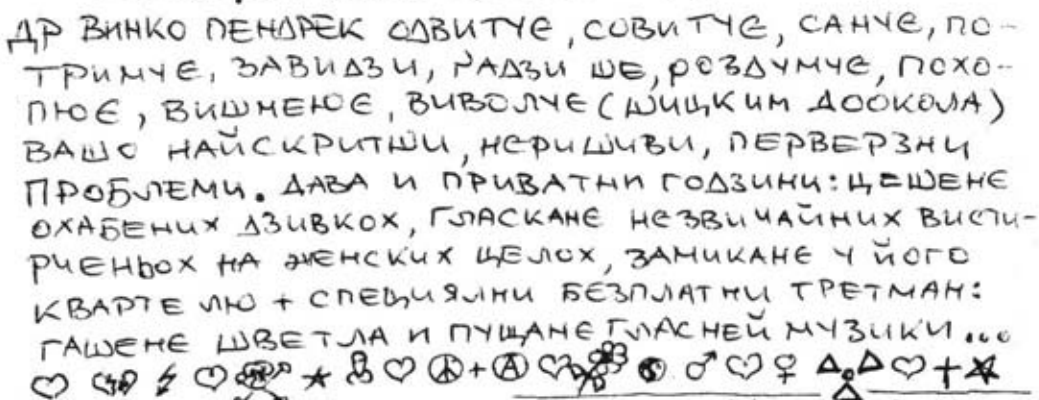 ДР ВИНКО ПЕНДРЕК ОДВИТУЄ, СОВИТУЄ, САНЧЕ, ПО-
ТРИМУЄ, ЗАВИДЗИ, РАДЗИ ШЕ, РОЗДУМУЄ, ПОХО-
ПЮЄ, ВИШМЕЮЄ, ВИВОЛУЄ (ШИЦКИМ ДООКОЛА)
ВАШО НАЙСКРИТШИ, НЄРИШИВИ, ПЕРВЕРЗНИ
ПРОБЛЕМИ. ДАВА И ПРИВАТНИ ГОДЗИНИ: ЦЕШЕНЄ
ОХАБЕНИХ ДЗИВКОХ, ГЛАСКАНЄ НЄЗВИЧАЙНИХ ВИСТИ-
РЧЕНЬОХ НА ЖЕНСКИХ ЦЕЛОХ, ЗАМИКАНЄ У ЙОГО
КВАРТЕЛЮ + СПЕЦИЯЛНИ БЕЗПЛАТНИ ТРЕТМАН:
ГАШЕНЄ ШВЕТЛА И ПУЩАНЄ ГЛАСНЕЙ МУЗИКИ...